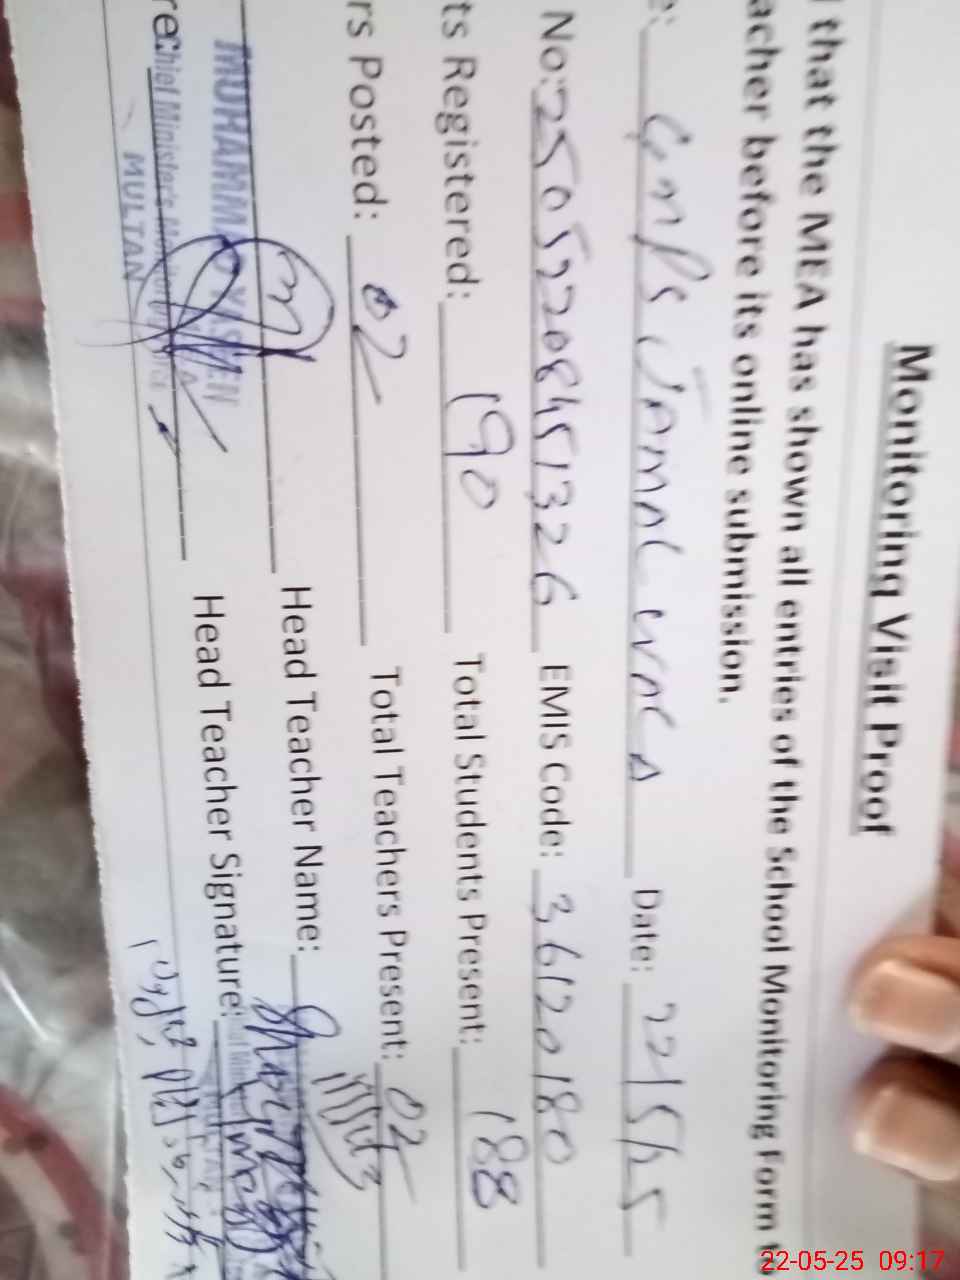 Monitoring Visit Proof
that the MEA has shown all entries of the School Monitoring Form to
acher before its online submission.
e: GMPS Jamal wala Date: 22/5/25
No: 25052208451326 EMIS Code: 36120180
ts Registered: 190 Total Students Present: 188
rs Posted: 02 Total Teachers Present: 02
MUHAMMAD YASEEN Head Teacher Name:
re: Chief Minister's Monitoring Force Head Teacher Signature:
MULTAN
22-05-25 09:17